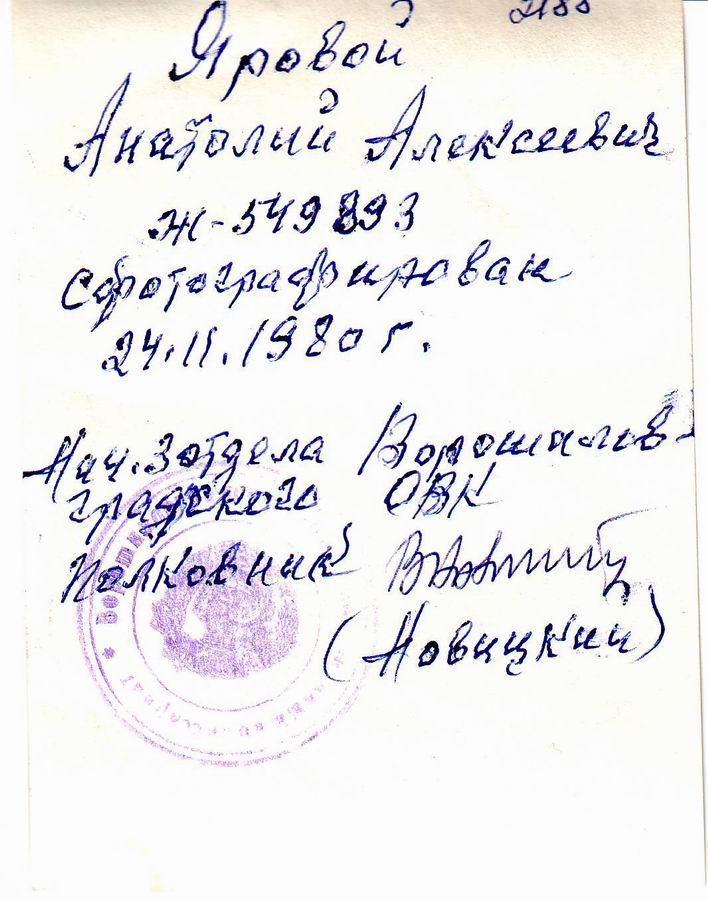 Яровой
Анатолий Алексеевич
Ж-549893
Сфотографирован
24.11.1980 г.
Нач. 3 отдела Ворошилов-
градского ОВК
Полковник
(Новицкий)